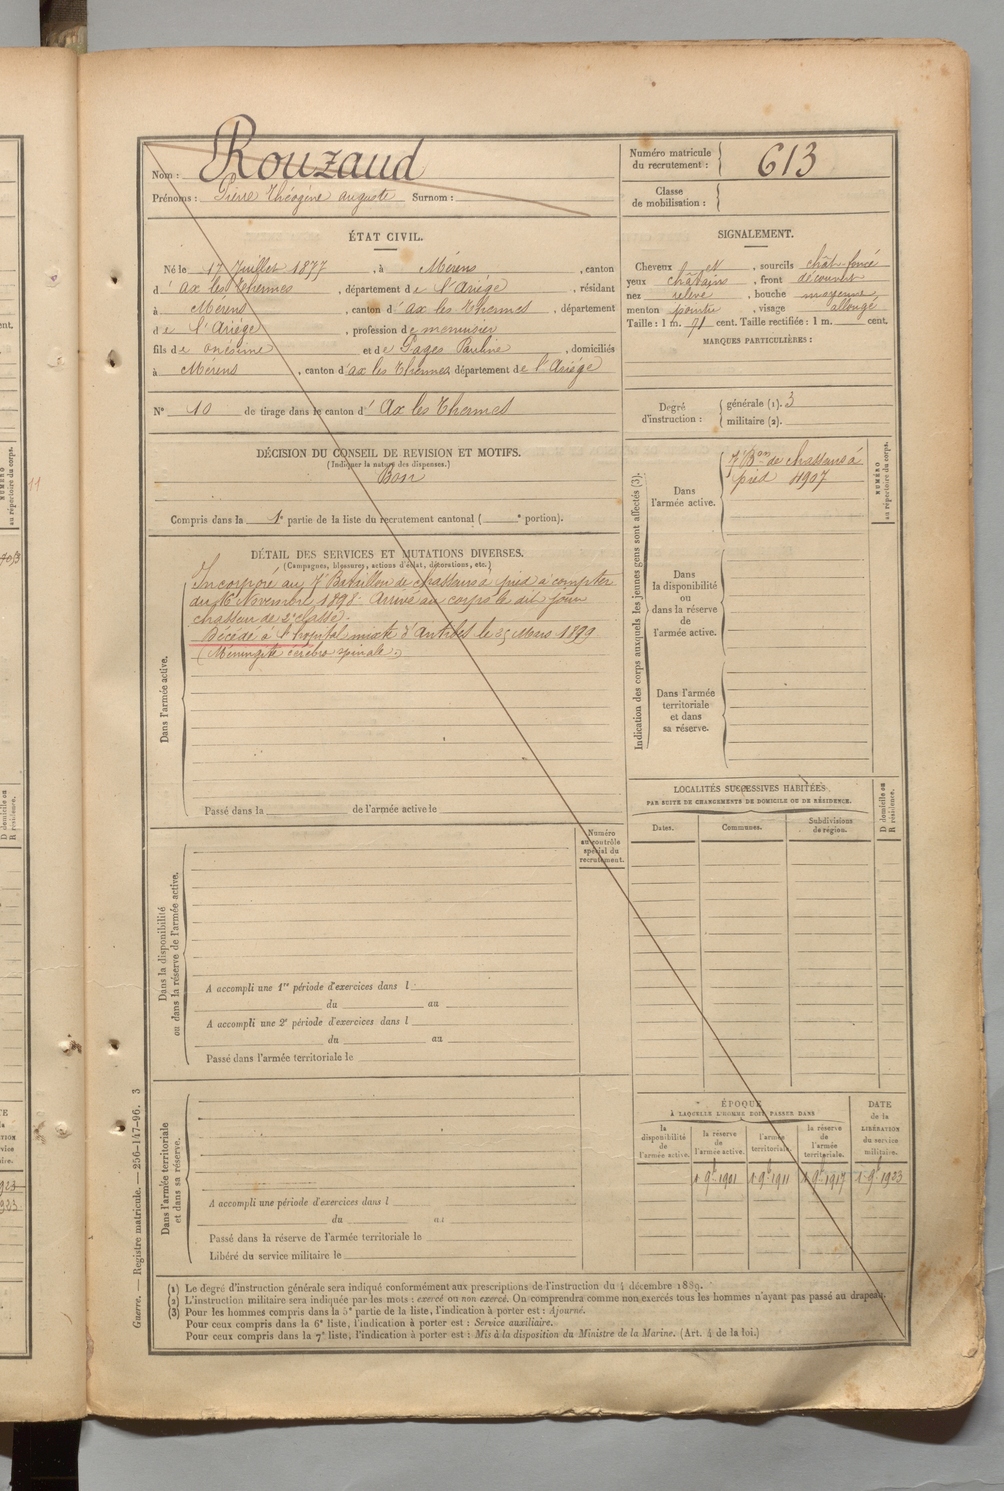 Nom : Rouzaud
Prénoms : Pierre Théogène auguste Surnom :
Numéro matricule du recrutement : 613
Classe de mobilisation :
ÉTAT CIVIL.
Né le 17 Juillet 1877, à Mérens, canton
d' ax les Thermes, département de l'Ariège, résidant
à Mérens, canton d'ax les Thermes, département
de l'Ariège, profession de menuisier
fils de onésime et de Pages Pauline, domiciliés
à Mérens, canton d'ax les Thermes, département de l'Ariége
N° 10 de tirage dans le canton d' Ax les Thermes
SIGNALEMENT.
Cheveux et, sourcils chât-foncé
yeux châtains, front découvert
nez relevé, bouche moyenne
menton pointu, visage allongé
Taille : 1 m. 71 cent. Taille rectifiée : 1 m. cent.
MARQUES PARTICULIÈRES :
Degré d'instruction : générale (1). 3
militaire (2).
DÉCISION DU CONSEIL DE REVISION ET MOTIFS.
(Indiquer la nature des dispenses.)
Bon
Compris dans la 1e partie de la liste du recrutement cantonal ( e portion).
DÉTAIL DES SERVICES ET MUTATIONS DIVERSES.
(Campagnes, blessures, actions d'éclat, décorations, etc.)
Dans l'armée active.
Incorporé au 7e Bataillon de chasseurs à pied à compter
du 16 Novembre 1898. Arrivé au corps le dit jour
chasseur de 2e classe.
Décédé à l'hôpital mixte d'Antibes le 25 Mars 1899
(Méningite cérébro spinale.)
Passé dans la de l'armée active le
Indication des corps auxquels les jeunes gens sont affectés (3).
Dans l'armée active.
7e Bon de chasseurs à
pied 11907
NUMÉRO au répertoire du corps.
Dans la disponibilité ou dans la réserve de l'armée active.
Dans l'armée territoriale et dans sa réserve.
LOCALITÉS SUCCESSIVES HABITÉES
PAR SUITE DE CHANGEMENTS DE DOMICILE OU DE RÉSIDENCE.
Dates. Communes. Subdivisions de région.
D domicile ou R résidence.
Numéro au contrôle spécial du recrutement.
Dans la disponibilité ou dans la réserve de l'armée active.
A accompli une 1re période d'exercices dans l
du au
A accompli une 2e période d'exercices dans l
du au
Passé dans l'armée territoriale le
Dans l'armée territoriale et dans sa réserve.
A accompli une période d'exercices dans l
du au
Passé dans la réserve de l'armée territoriale le
Libéré du service militaire le
ÉPOQUE
À LAQUELLE L'HOMME DOIT PASSER DANS
la disponibilité de l'armée active.
la réserve de l'armée active.
l'armée territoriale.
la réserve de l'armée territoriale.
DATE de la LIBÉRATION du service militaire.
1 9bre 1901 1 9bre 1911 1 9bre 1917 1 9bre 1923
(1) Le degré d'instruction générale sera indiqué conformément aux prescriptions de l'instruction du 4 décembre 1889.
(2) L'instruction militaire sera indiquée par les mots : exercé ou non exercé. On comprendra comme non exercés tous les hommes n'ayant pas passé au drapeau.
(3) Pour les hommes compris dans la 5e partie de la liste, l'indication à porter est : Ajourné.
Pour ceux compris dans la 6e liste, l'indication à porter est : Service auxiliaire.
Pour ceux compris dans la 7e liste, l'indication à porter est : Mis à la disposition du Ministre de la Marine. (Art. 4 de la loi.)
Guerre. — Registre matricule. — 256-147-96. 3